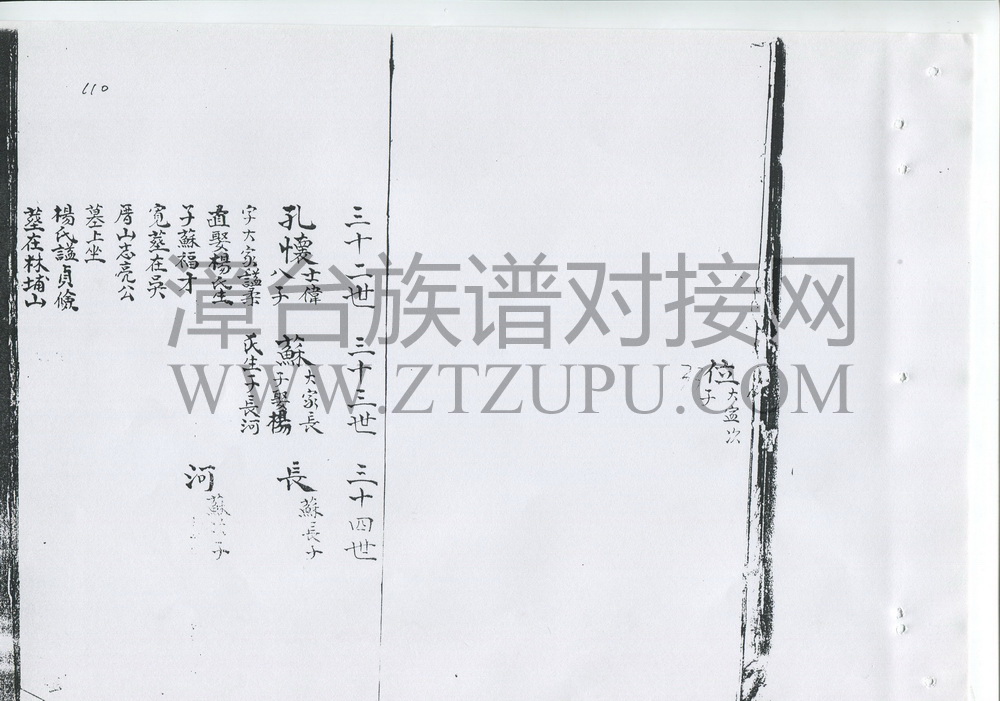 110
位大宣次
子
三十二世
三十三世
三十四世
孔懷士偉
八子
字大家諡柔
直娶楊氏生
子蘇福才
寬塟在吳
厝山志亮公
墓上坐
楊氏諡貞儉
塟在林埔山
蘇大家長
子娶楊
氏生子長河
長蘇長子
河蘇次子
漳台族谱对接网
WWW.ZTZUPU.COM